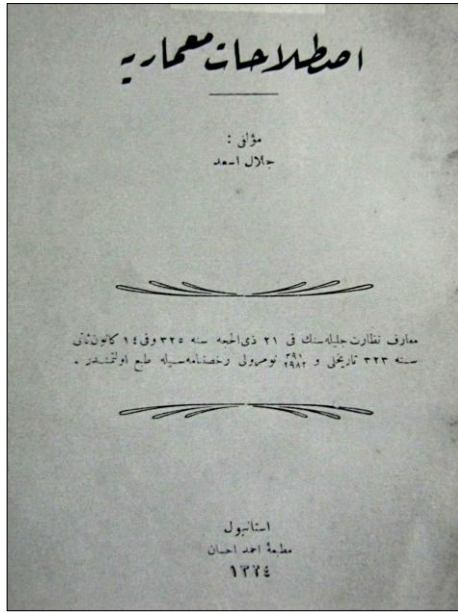 اصطلاحات معماریه
مؤلفی :
جلال اسعد
معارف نظارت جلیله‌سنك فی ٢١ ذی‌الحجه سنه ٣٢٥ وفی ١٤ كانون ثانی
سنه ٣٢٣ تاریخلی و ٣٩١ ٢٩٨٢ نومرولی رخصتنامه‌سیله طبع اولنمشدر .
استانبول
مطبعۀ احمد احسان
١٣٢٤